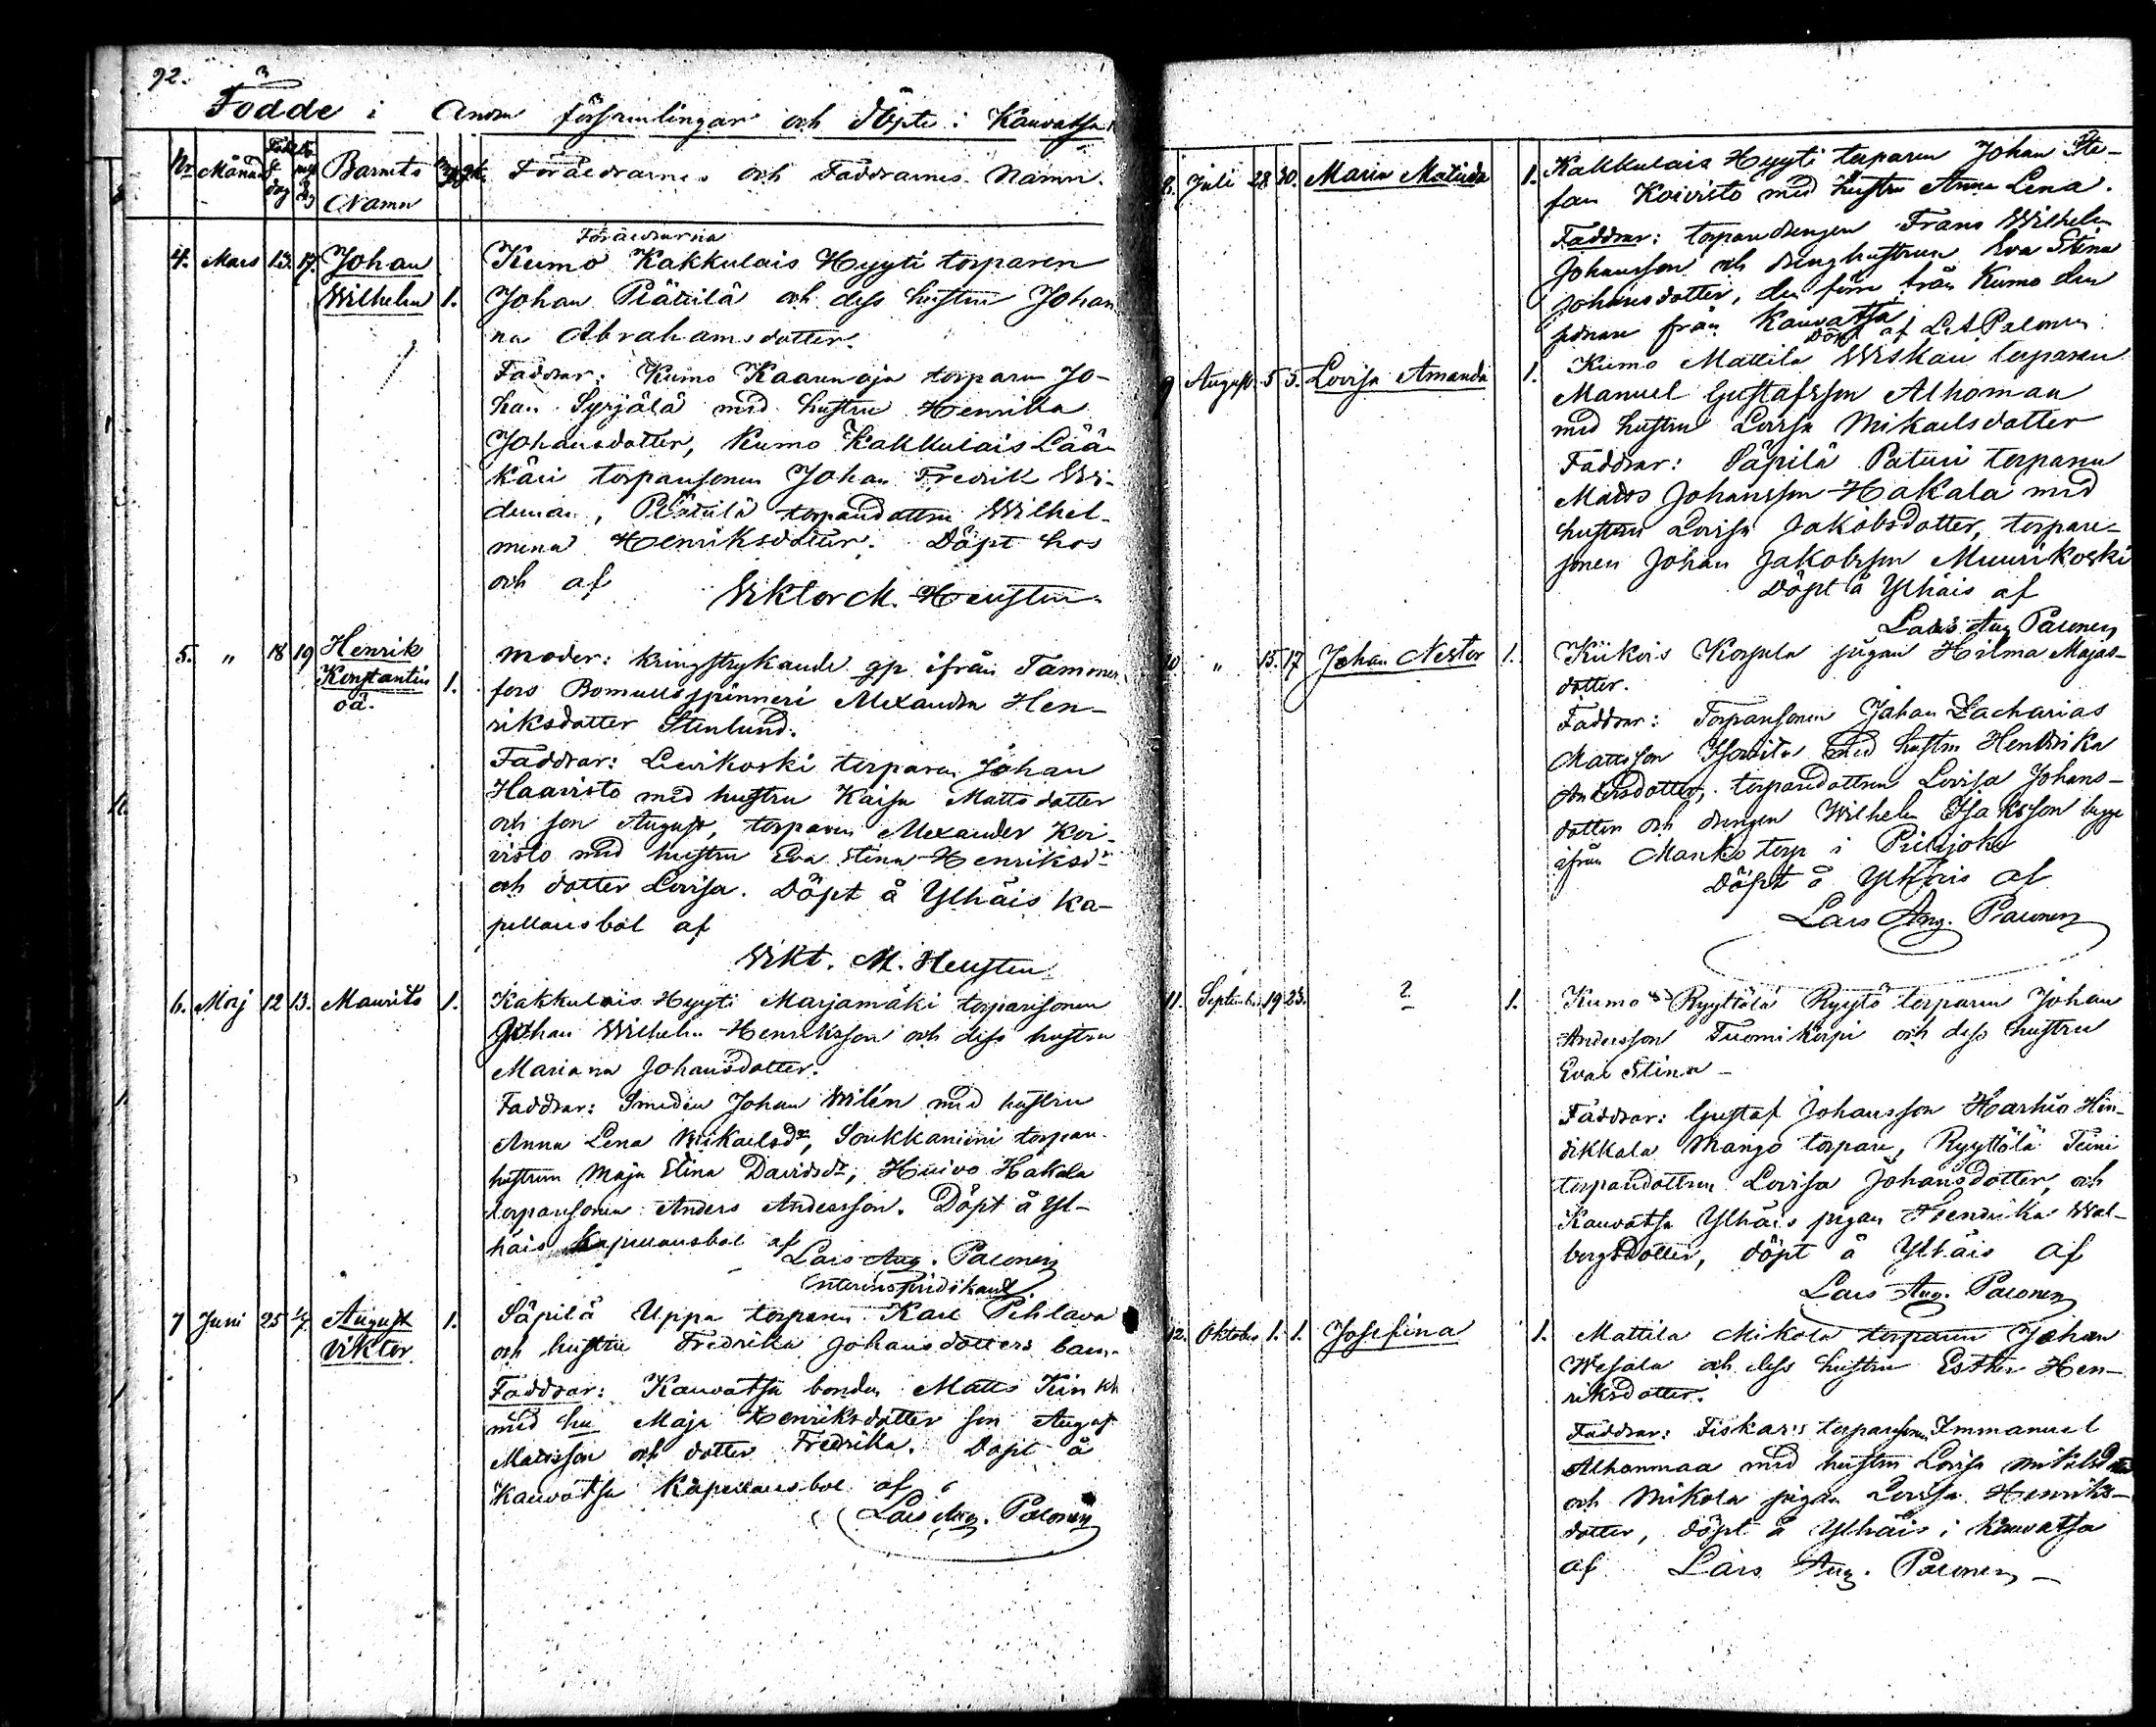 92.
Födde i Andra församlingar och döpte i Kauvatsa
Nr Månad Födelse dag Barnets Namn Föräldrarnes och Faddrarnes Namn.
Föräldrarna
4. Mars 13. 17. Johan Kumo Kakkulais Hyyti torparen
Wilhelm 1. Johan Piättilä och dess hustru Johan
na Abrahamsdotter.
Faddrar: Kumo Kaarenoja torparen Jo-
han Syrjälä med hustru Henrika
Johansdotter, Kumo Kakkulais Lää-
käri torparesonen Johan Fredrik Wi-
deman, Piättilä torpandottren Wilhel-
mina Henriksdotter. Döpt hos
och af Viktor M. Heusten.
5. " 18 19 Henrik moder: kringstrykande qp ifrån Tammer
Konstantin 1. fors Bomullsspinneri Alexandra Hen-
oä. riksdotter Stenlund.
Faddrar: Levikoski torparen Johan
Haavisto med hustru Kaisa Mattsdotter
och son August, torparen Alexander Koi-
visto med hustru Eva Stina Henriksdr
och dotter Lovisa. Döpt å Ylhäis ka-
pellansbol af
Vikt. M. Heusten
6. Maj 12 13. Maurits 1. Kakkulais Hyyti Marjamäki torparesonen
Johan Wilhelm Henriksson och dess hustru
Mariana Johansdotter.
Faddrar: Smeden Johan Wilén med hustru
Anna Lena Mikaelsdr, Soukkaniemi torpare
hustrun Maja Stina Davidsdr, Huivo Hakala
torparesonen Anders Andersson. Döpt å Yl-
häis Kapellansbol af Lars Aug. Palonen
interimspredikant.
7 Juni 25 1/7 August 1. Säpilä Uppa torparen Karl Pihlava
Viktor och hustru Fredrika Johansdotters barn
Faddrar: Kauvatsa bonden Matts
med hu Maja Henriksdotter son August
Mattsson och dotter Fredrika. Döpt å
Kauvatsa Kapellansbol af
Lars Aug. Palonen
8. Juli 28 30. Maria Matilda 1. Kakkulais Hyyti torparen Johan Ste-
fan Koivisto med hustru Anna Lena.
Faddrar: torparedrengen Frans Wilhelm
Johansson och drenghustrun Eva Stina
Johansdotter, den förre från Kumo den
senare från Kauvatsa
Döpt af L.A. Palonen
9 August 5 5. Lovisa Amanda 1. Kumo Mattila Wiskari torparen
Manuel Gustafsson Alhoman
med hustru Lovisa Mikaelsdotter
Faddrar: Säpilä Paturi torparen
Matts Johansson Hakala med
hustru Lovisa Jakobsdotter, torpare-
sonen Johan Jakobsson Muurikoski
Döpt å Ylhäis af
Lars Aug Palonen
10 " 15. 17 Johan Nestor 1. Kiikois Korpela pigan Hilma Majas-
dotter.
Faddrar: Torparesonen Johan Zacharias
Mattsson med hustru Hendrika
Andersdotter, torparedottren Lovisa Johans-
dotter och drengen Wilhelm Isaksson begge
ifrån Manko torp i Piilijoki
Döpt å Ylhäis af
Lars Aug. Palonen
11. September 19 23. ? 1. Kumo Ryyttölä Ryytö torparen Johan
Andersson Tuomikorpi och dess hustru
Eva Stina -
Faddrar: Gustaf Johansson Harhio Hin-
dikkala Mango torpare, Ryyttölä Teini
torparedottren Lovisa Johansdotter, och
Kauvatsa Ylhäis pigan Hendrika Wal-
bergsdotter, döpt å Ylhäis af
Lars Aug. Palonen
12. Oktober 1. 1. Josefina 1. Mattila Mikola torparen Johan
Wesala och dess hustru Esther Hen-
riksdotter.
Faddrar: Fiskars torparesonen Immanuel
Alhonmaa med hustru Lovisa
och Mikola pigan Lovisa Henriks-
dotter, döpt å Ylhäis i Kauvatsa
af Lars Aug. Palonen -